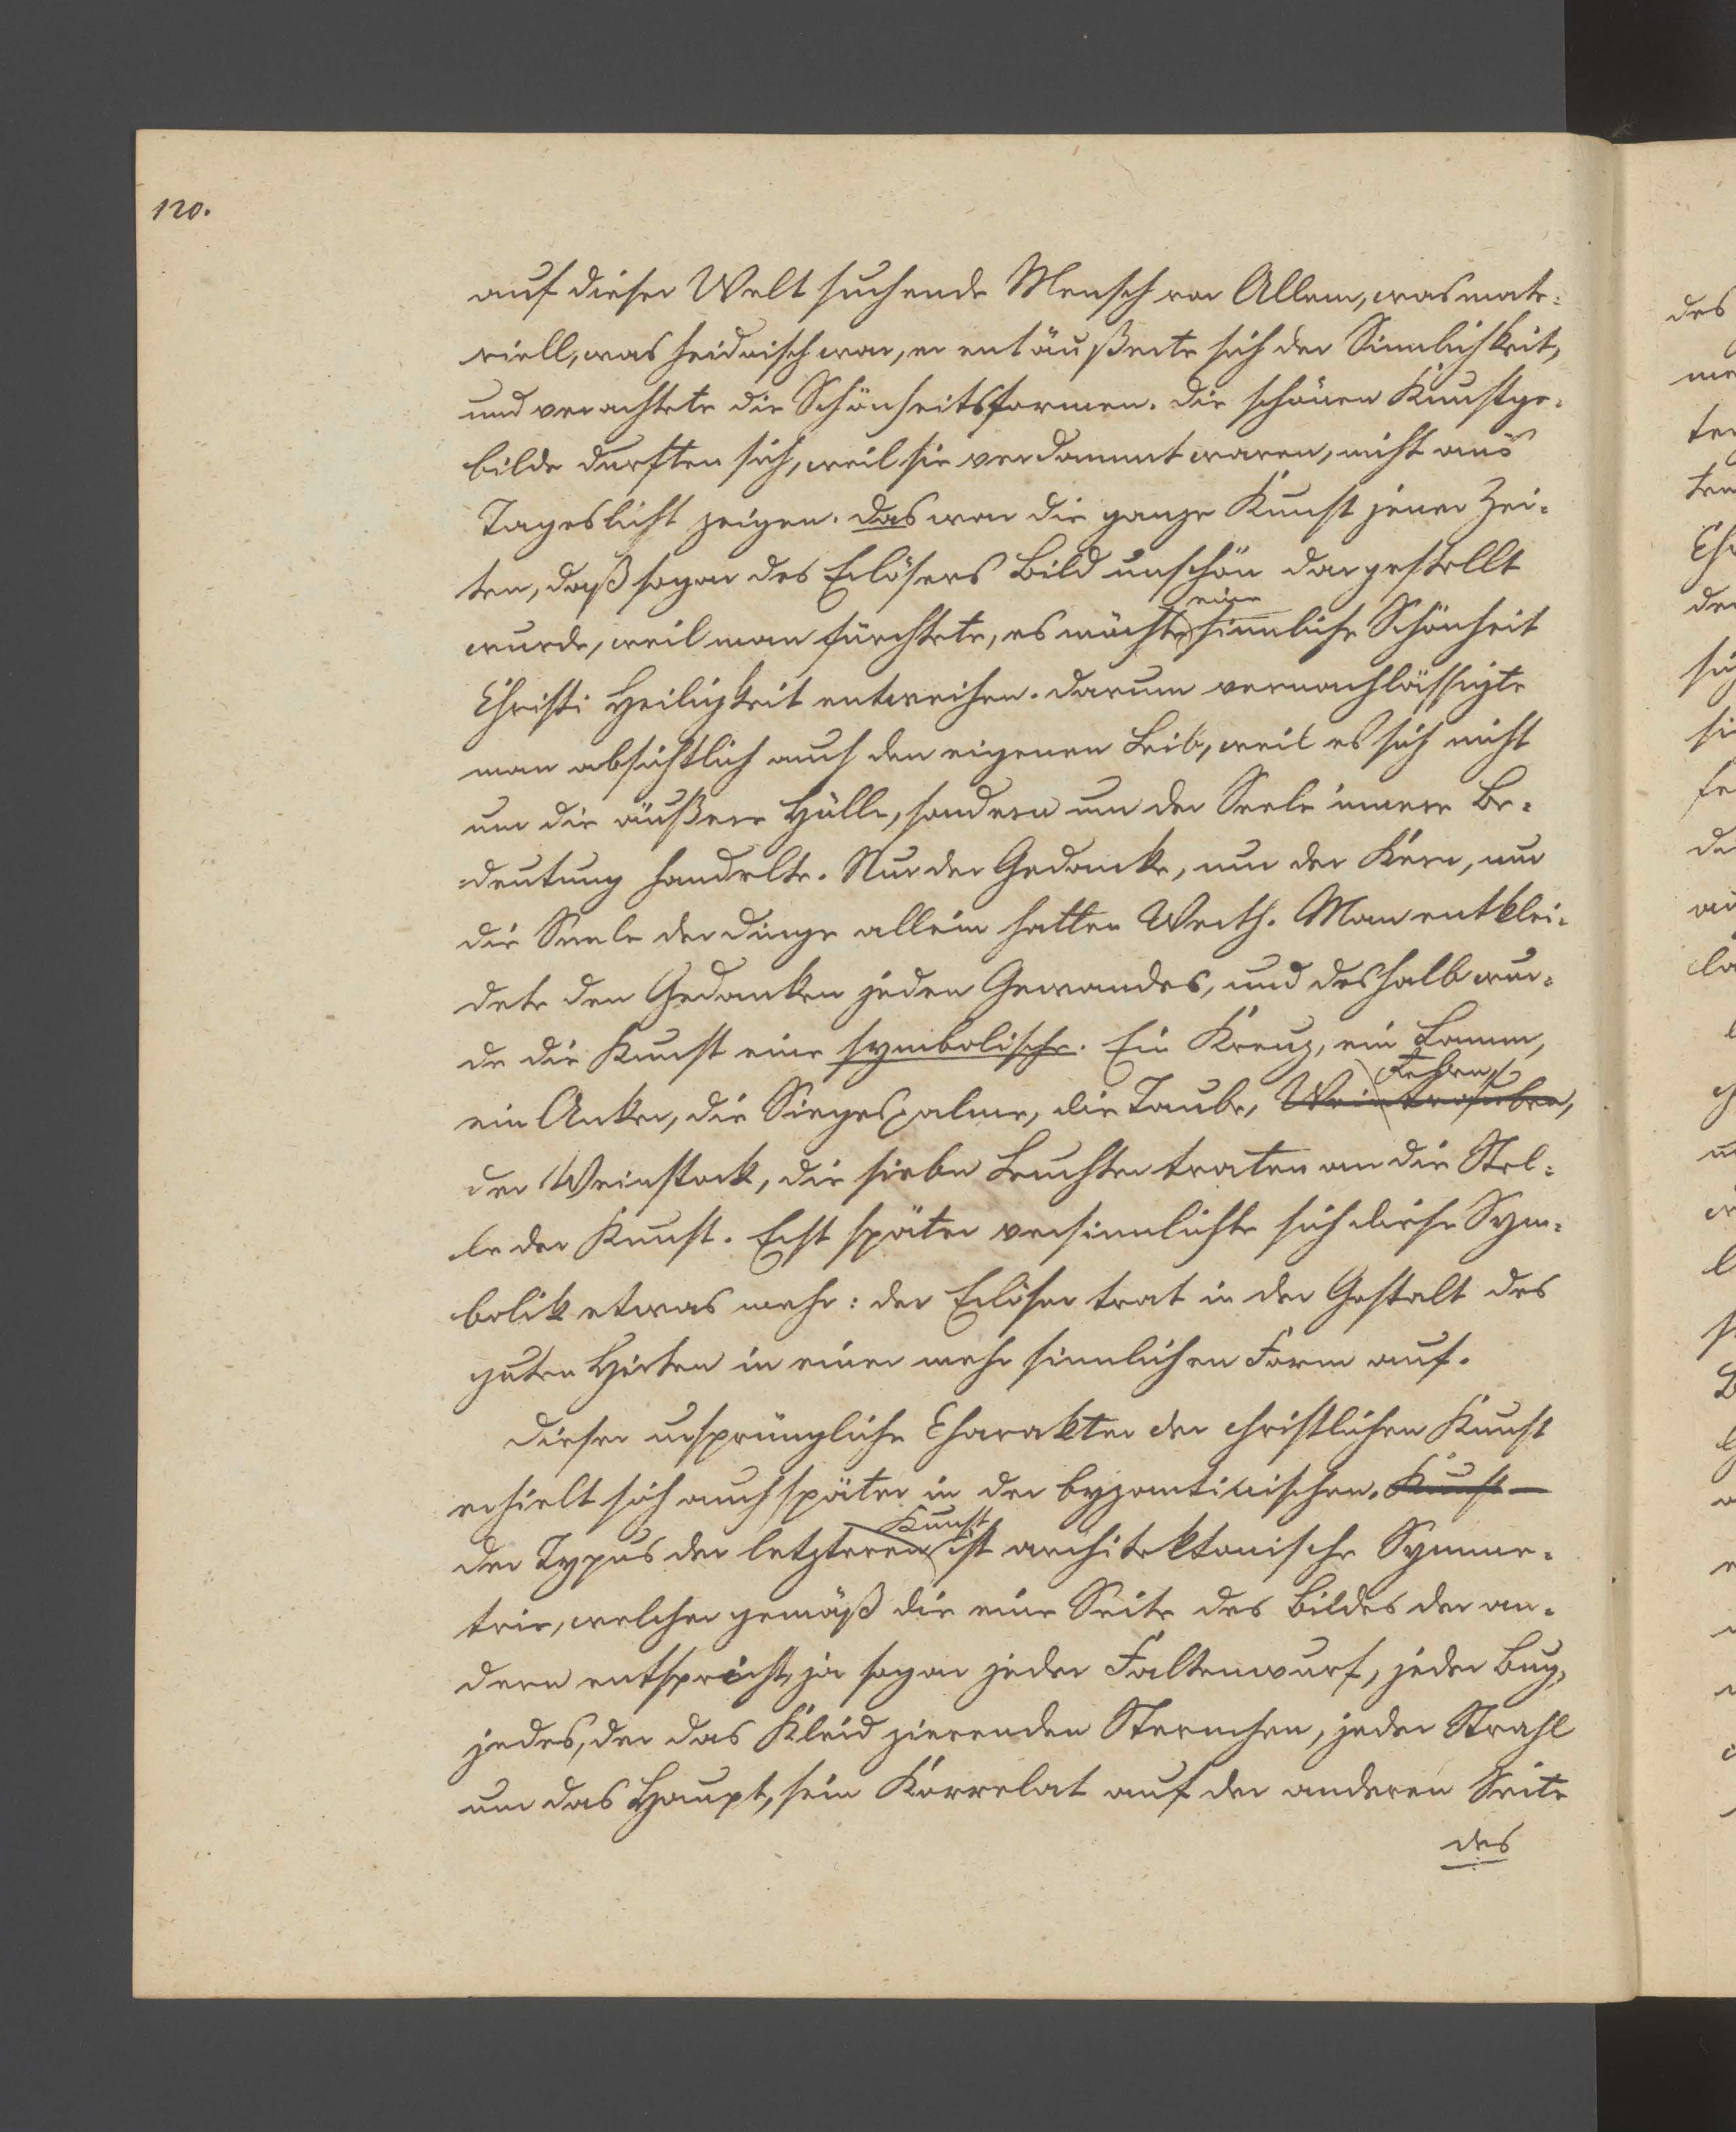 120.
auf dieser Welt suchende Mensch vor Allem, was mate-
riell, was heidnisch war, er entäußerte sich der Sinnlichkeit,
und verachtete die Schönheitsformen. Die schönen Kunstge-
bilde durften sich, weil sie verdammt waren, nicht ans
Tageslicht zeigen. Das war die ganze Kunst jener Zei-
ten, daß sogar des Erlösers Bild unschön dargestellt
eine
wurde, weil man fürchtete, es möchte sinnliche Schönheit
Christi Heiligkeit entweihen. Darum vernachlässigte
man absichtlich auch den eigenen Leib, weil es sich nicht
um die äußere Hülle, sondern um der Seele innere Be-
deutung handelte. Nur der Gedanke, nur der Kern, nur
die Seele der Dinge allein hatten Werth. Man entklei-
dete den Gedanken jeden Gewandes, und deshalb wur-
de die Kunst eine symbolische. Ein Kreuz, ein Lamm,
ein Anker, die Siegespalme, die Taube, Weintrauben,
der Weinstock, die sieben Leuchter traten an die Stel-
le der Kunst. Erst später versinnlichte sich diese Sym-
bolik etwas mehr: der Erlöser trat in der Gestalt des
guten Hirten in einer mehr sinnlichen Form auf.
Dieser ursprüngliche Charakter der christlichen Kunst
erhielt sich auch später in der byzantinischen. Kunst
Kunst
der Typus der letzteren ist architektonische Symme-
trie, welcher gemäß die eine Seite des Bildes der an-
dern entspricht, ja sogar jeder Faltenwurf, jeder Bug,
jedes, der das Kleid zierenden Sternchen, jeder Strahl
um das Haupt, sein Korrelat auf der anderen Seite
des